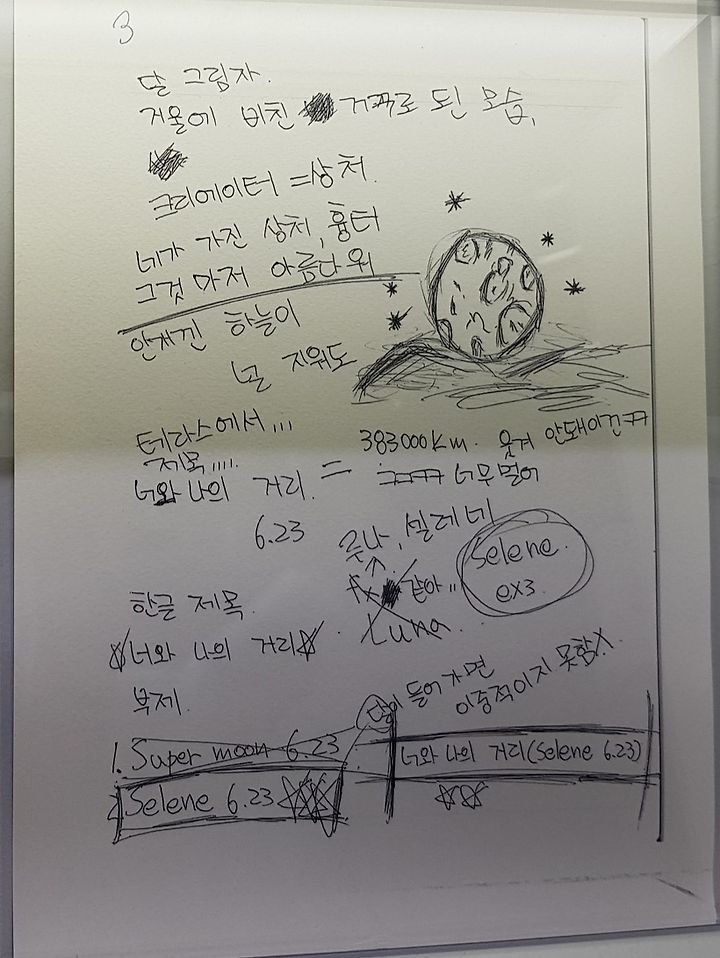 3
달 그림자.
거울에 비친 거꾸로 된 모습.
크리에이터 = 상처.
네가 가진 상처, 흉터
그것 마저 아름다워
안개낀 하늘이
널 지워도
테라스에서...
제목....
너와 나의 거리. = 383000km. 웃겨 안돼이건ㅠㅠ
ㅋㅋㅋㅋ 너무 멀어
6.23
루나, 셀레네
fx 같아..
Luna.
Selene.
ex3.
한글 제목.
☆너와 나의 거리☆.
부제.
달이 들어가면
이중적이지 못함X
1. Super moon 6.23
2. Selene 6.23 ☆☆☆
너와 나의 거리(Selene 6.23)
☆☆